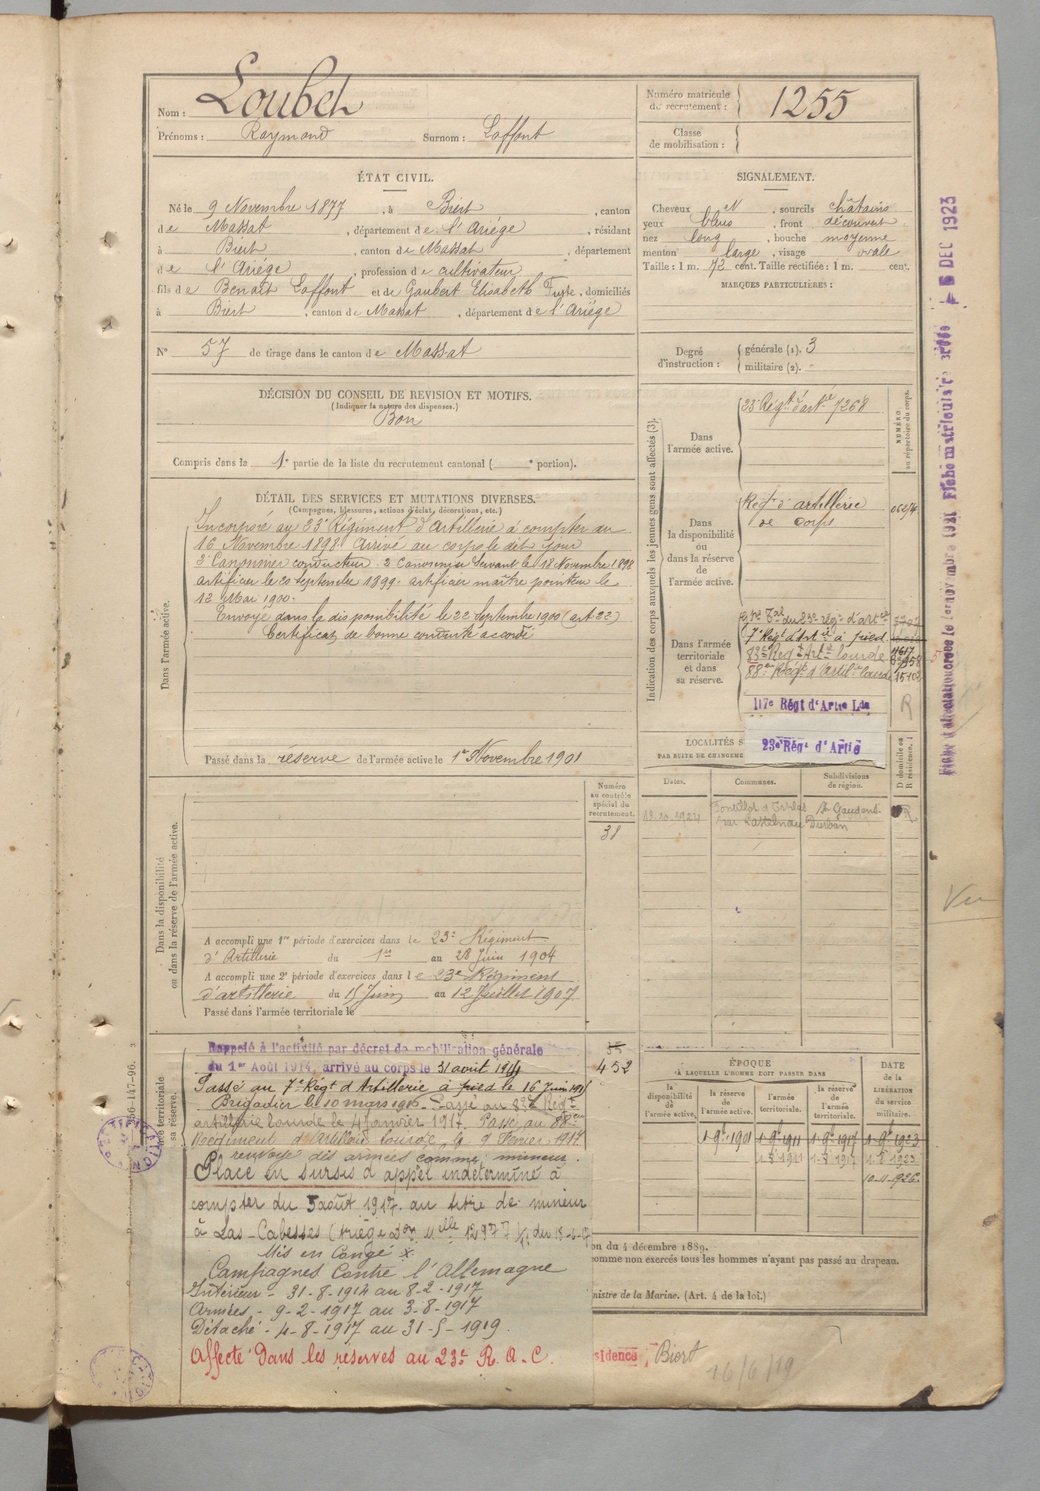 Nom : Loubet
Prénoms : Raymond Surnom : Laffont
Numéro matricule du recrutement : 1255
Classe de mobilisation :
ÉTAT CIVIL.
Né le 9 Novembre 1877, à Biert, canton
de Massat, département de l'Ariège, résidant
à Biert, canton de Massat, département
de l'Ariège, profession de cultivateur
fils de Benoit Laffont et de Gaubert Elisabeth, domiciliés
à Biert, canton de Massat, département de l'Ariège
N° 57 de tirage dans le canton de Massat
SIGNALEMENT.
Cheveux N, sourcils châtains
yeux bleus, front découvert
nez long, bouche moyenne
menton large, visage ovale
Taille : 1 m. 72 cent. Taille rectifiée : 1 m. cent.
MARQUES PARTICULIÈRES :
Degré d'instruction : générale (1). 3
militaire (2).
DÉCISION DU CONSEIL DE REVISION ET MOTIFS.
(Indiquer la nature des dispenses.)
Bon
Compris dans la 1e partie de la liste du recrutement cantonal ( e portion).
DÉTAIL DES SERVICES ET MUTATIONS DIVERSES.
(Campagnes, blessures, actions d'éclat, décorations, etc.)
Dans l'armée active.
Incorporé au 23e Régiment d'Artillerie à compter du
16 Novembre 1898. Arrivé au corps le dit jour
2e Canonnier conducteur. 2e Canonnier Servant le 18 Novembre 1898
artificier le 20 septembre 1899. artificier maître pointeur le
12 Mai 1900.
Envoyé dans la disponibilité le 22 Septembre 1900
Certificat de bonne conduite accordé
Passé dans la réserve de l'armée active le 1er Novembre 1901
Indication des corps auxquels les jeunes gens sont affectés (3).
NUMÉRO au répertoire du corps.
Dans l'armée active.
23e Régt d'artie 7268
Dans la disponibilité ou dans la réserve de l'armée active.
Regt d'artillerie
de corps
Dans l'armée territoriale et dans sa réserve.
du 23e régt d'artie
7e Régt d'Artie à pied
83e Regt Artie lourde
88e Régt d'Artilie lourde
117e Régt d'Artie Lde
R
23e Régt d'Artie
LOCALITÉS S
PAR SUITE DE CHANGEME
D domicile ou R résidence.
Dates. Communes. Subdivisions de région.
St Gaudens R
par Castelnau Durban
Dans la disponibilité ou dans la réserve de l'armée active.
Numéro au contrôle spécial du recrutement.
31
A accompli une 1re période d'exercices dans le 23e Régiment
d'Artillerie du 1er au 28 Juin 1904
A accompli une 2e période d'exercices dans le 23e Régiment
d'artillerie du 15 Juin au 12 Juillet 1907
Passé dans l'armée territoriale le
Rappelé à l'activité par décret de mobilisation générale
du 1er Août 1914, arrivé au corps le 31 août 1914
432
Passé au 7e Régt d'Artillerie à pied le 16 Juin
Brigadier le 10 mars 1916. Passé au 83e Regt
artillerie lourde le 4 janvier 1917. Passé au 88e
Regiment d'Artillerie lourde, le 9 Février 1917
renvoyé des armées comme mineur.
Placé en sursis d'appel indéterminé à
compter du 5 août 1917. au titre de mineur
à Las-Cabesses (Ariège
Mis en Congé x
Campagnes Contre l'Allemagne
Intérieur - 31-8-1914 au 8-2-1917
Armées - 9-2-1917 au 3-8-1917
Détaché - 4-8-1917 au 31-5-1919.
Affecté Dans les réserves au 23e R.A.C.
ÉPOQUE
À LAQUELLE L'HOMME DOIT PASSER DANS
DATE de la LIBÉRATION du service militaire.
la disponibilité de l'armée active.
la réserve de l'armée active.
l'armée territoriale.
la réserve de l'armée territoriale.
1-9bre 1901 1-9bre 1911 1-9bre 1917 1-9bre 1923
10-11-1926
on du 4 décembre 1889.
comme non exercés tous les hommes n'ayant pas passé au drapeau.
nistre de la Marine. (Art. 4 de la loi.)
sidence, Biert
16/6/19
Vu
6 DEC 1923